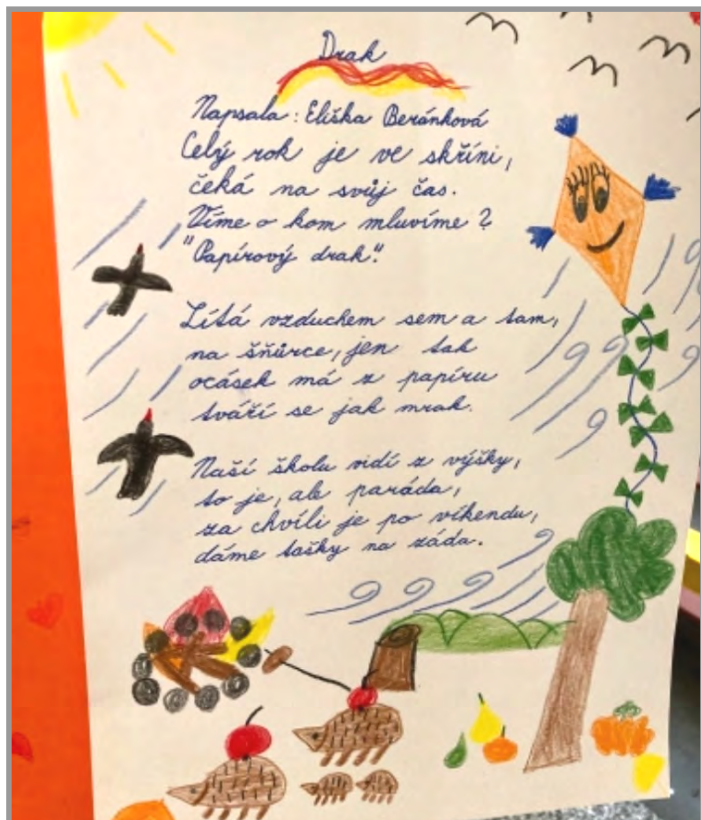 Drak
Napsala: Eliška Beránková
Celý rok je ve skříni,
čeká na svůj čas.
Víme o kom mluvíme?
"Papírový drak".
Lítá vzduchem sem a tam,
na šňůrce, jen tak
ocásek má z papíru
tváří se jak mrak.
Naší školu vidí z výšky,
to je, ale paráda,
za chvíli je po víkendu,
dáme tašky na záda.